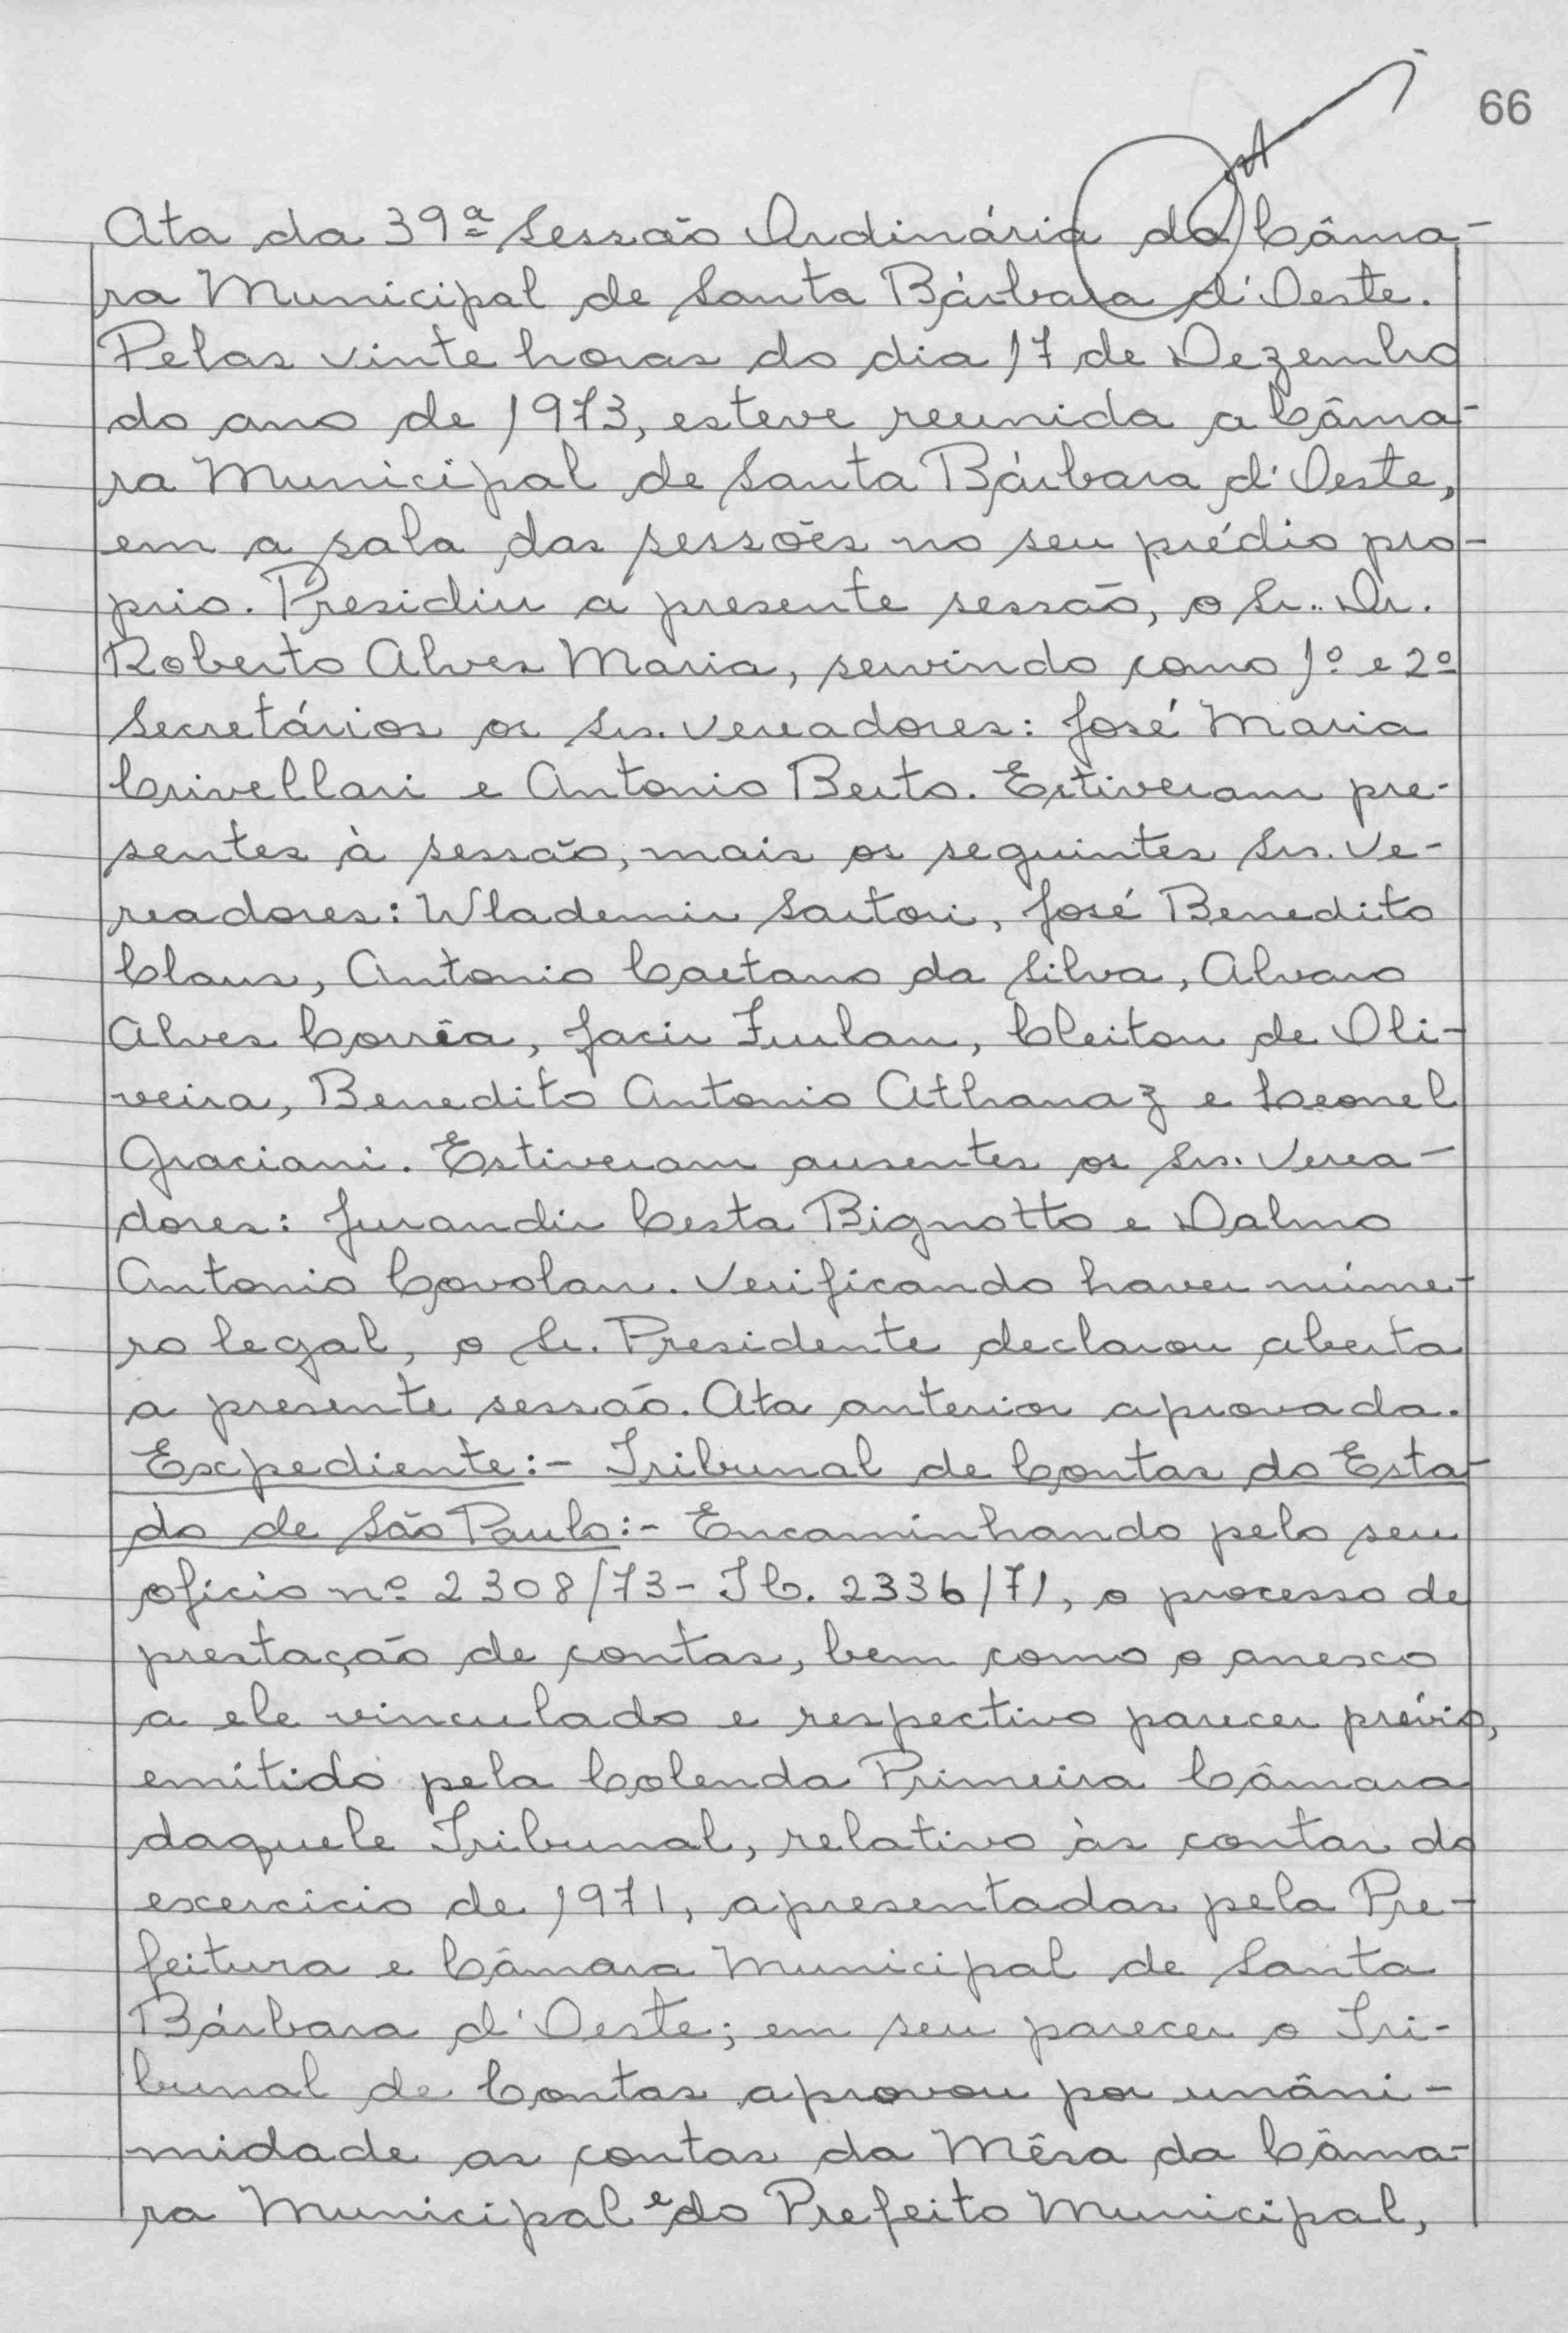 66
Ata da 39ª Sessão Ordinária da Câma-
ra Municipal de Santa Bárbara d'Oeste.
Pelas vinte horas do dia 17 de Dezembro
do ano de 1973, esteve reunida a Câma-
ra Municipal de Santa Bárbara d'Oeste,
em a sala das sessões no seu prédio pro-
prio. Presidiu a presente sessão, o Sr. Dr.
Roberto Alves Maria, servindo como 1º e 2º
Secretários os Srs. Vereadores: José Maria
Crivellari e Antonio Berto. Estiveram pre-
sentes à sessão, mais os seguintes Srs. Ve-
readores: Wlademir Sartori, José Benedito
Claus, Antonio Caetano da Silva, Alvaro
Alves Corrêa, Jacir Furlan, Cleiton de Oli-
veira, Benedito Antonio Athanaz e Leonel
Graciani. Estiveram ausentes os Srs. Verea-
dores: Jurandir Cesta Bignotto e Dalmo
Antonio Covolan. Verificando haver núme-
ro legal, o Sr. Presidente declarou aberta
a presente sessão. Ata anterior aprovada.
Expediente:- Tribunal de Contas do Esta-
do de São Paulo:- Encaminhando pelo seu
oficio nº 2308/73 - TC. 2336/71, o processo de
prestação de contas, bem como o anexo
a ele vinculado e respectivo parecer prévio,
emitido pela Colenda Primeira Câmara
daquele Tribunal, relativo às contas do
exercicio de 1971, apresentadas pela Pre-
feitura e Câmara Municipal de Santa
Bárbara d'Oeste; em seu parecer o Tri-
bunal de Contas aprovou por unâni-
midade as contas da Mêsa da Câma-
ra Municipal e do Prefeito Municipal,